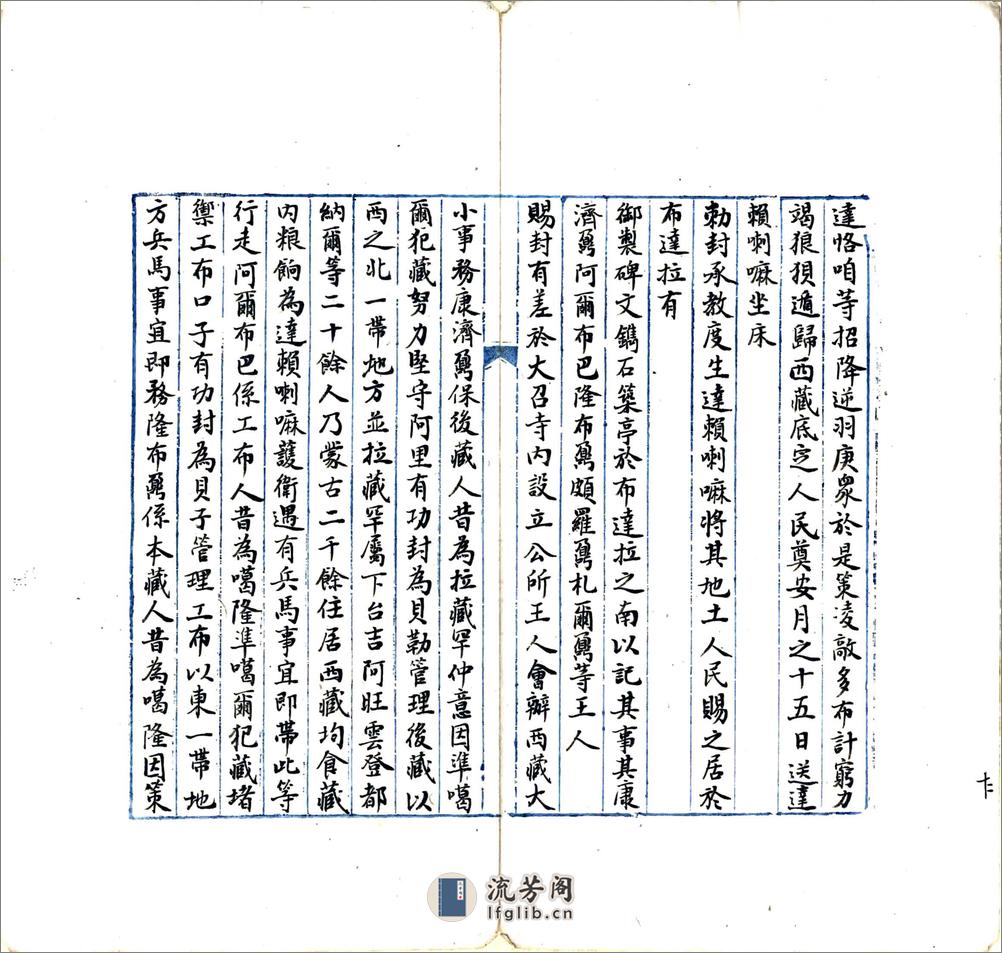 達恪咱等招降逆羽庚眾於是策凌敲多布計窮力
竭狼狽遁歸西藏底定人民奠安月之十五日送達
賴喇嘛坐床
勅封承教度生達賴喇嘛將其地土人民賜之居於
布達拉有
御製碑文鐫石築亭於布達拉之南以記其事其康
濟鼐阿爾布巴隆布鼐頗羅鼐札爾鼐等王人
賜封有差於大召寺內設立公所王人會辦西藏大
小事務康濟鼐保後藏人昔為拉藏罕仲意因準噶
爾犯藏努力堅守阿里有功封為貝勒管理後藏以
西之北一帶地方並拉藏罕屬下台吉阿旺雲登都
納爾等二十餘人乃蒙古二千餘住居西藏均食藏
內粮餉為達賴喇嘛護衛遇有兵馬事宜即帶此等
行走阿爾布巴係工布人昔為噶隆準噶爾犯藏堵
禦工布口子有功封為貝子管理工布以東一帶地
方兵馬事宜即務隆布鼐係本藏人昔為噶隆因策
流芳阁
lfglib.cn